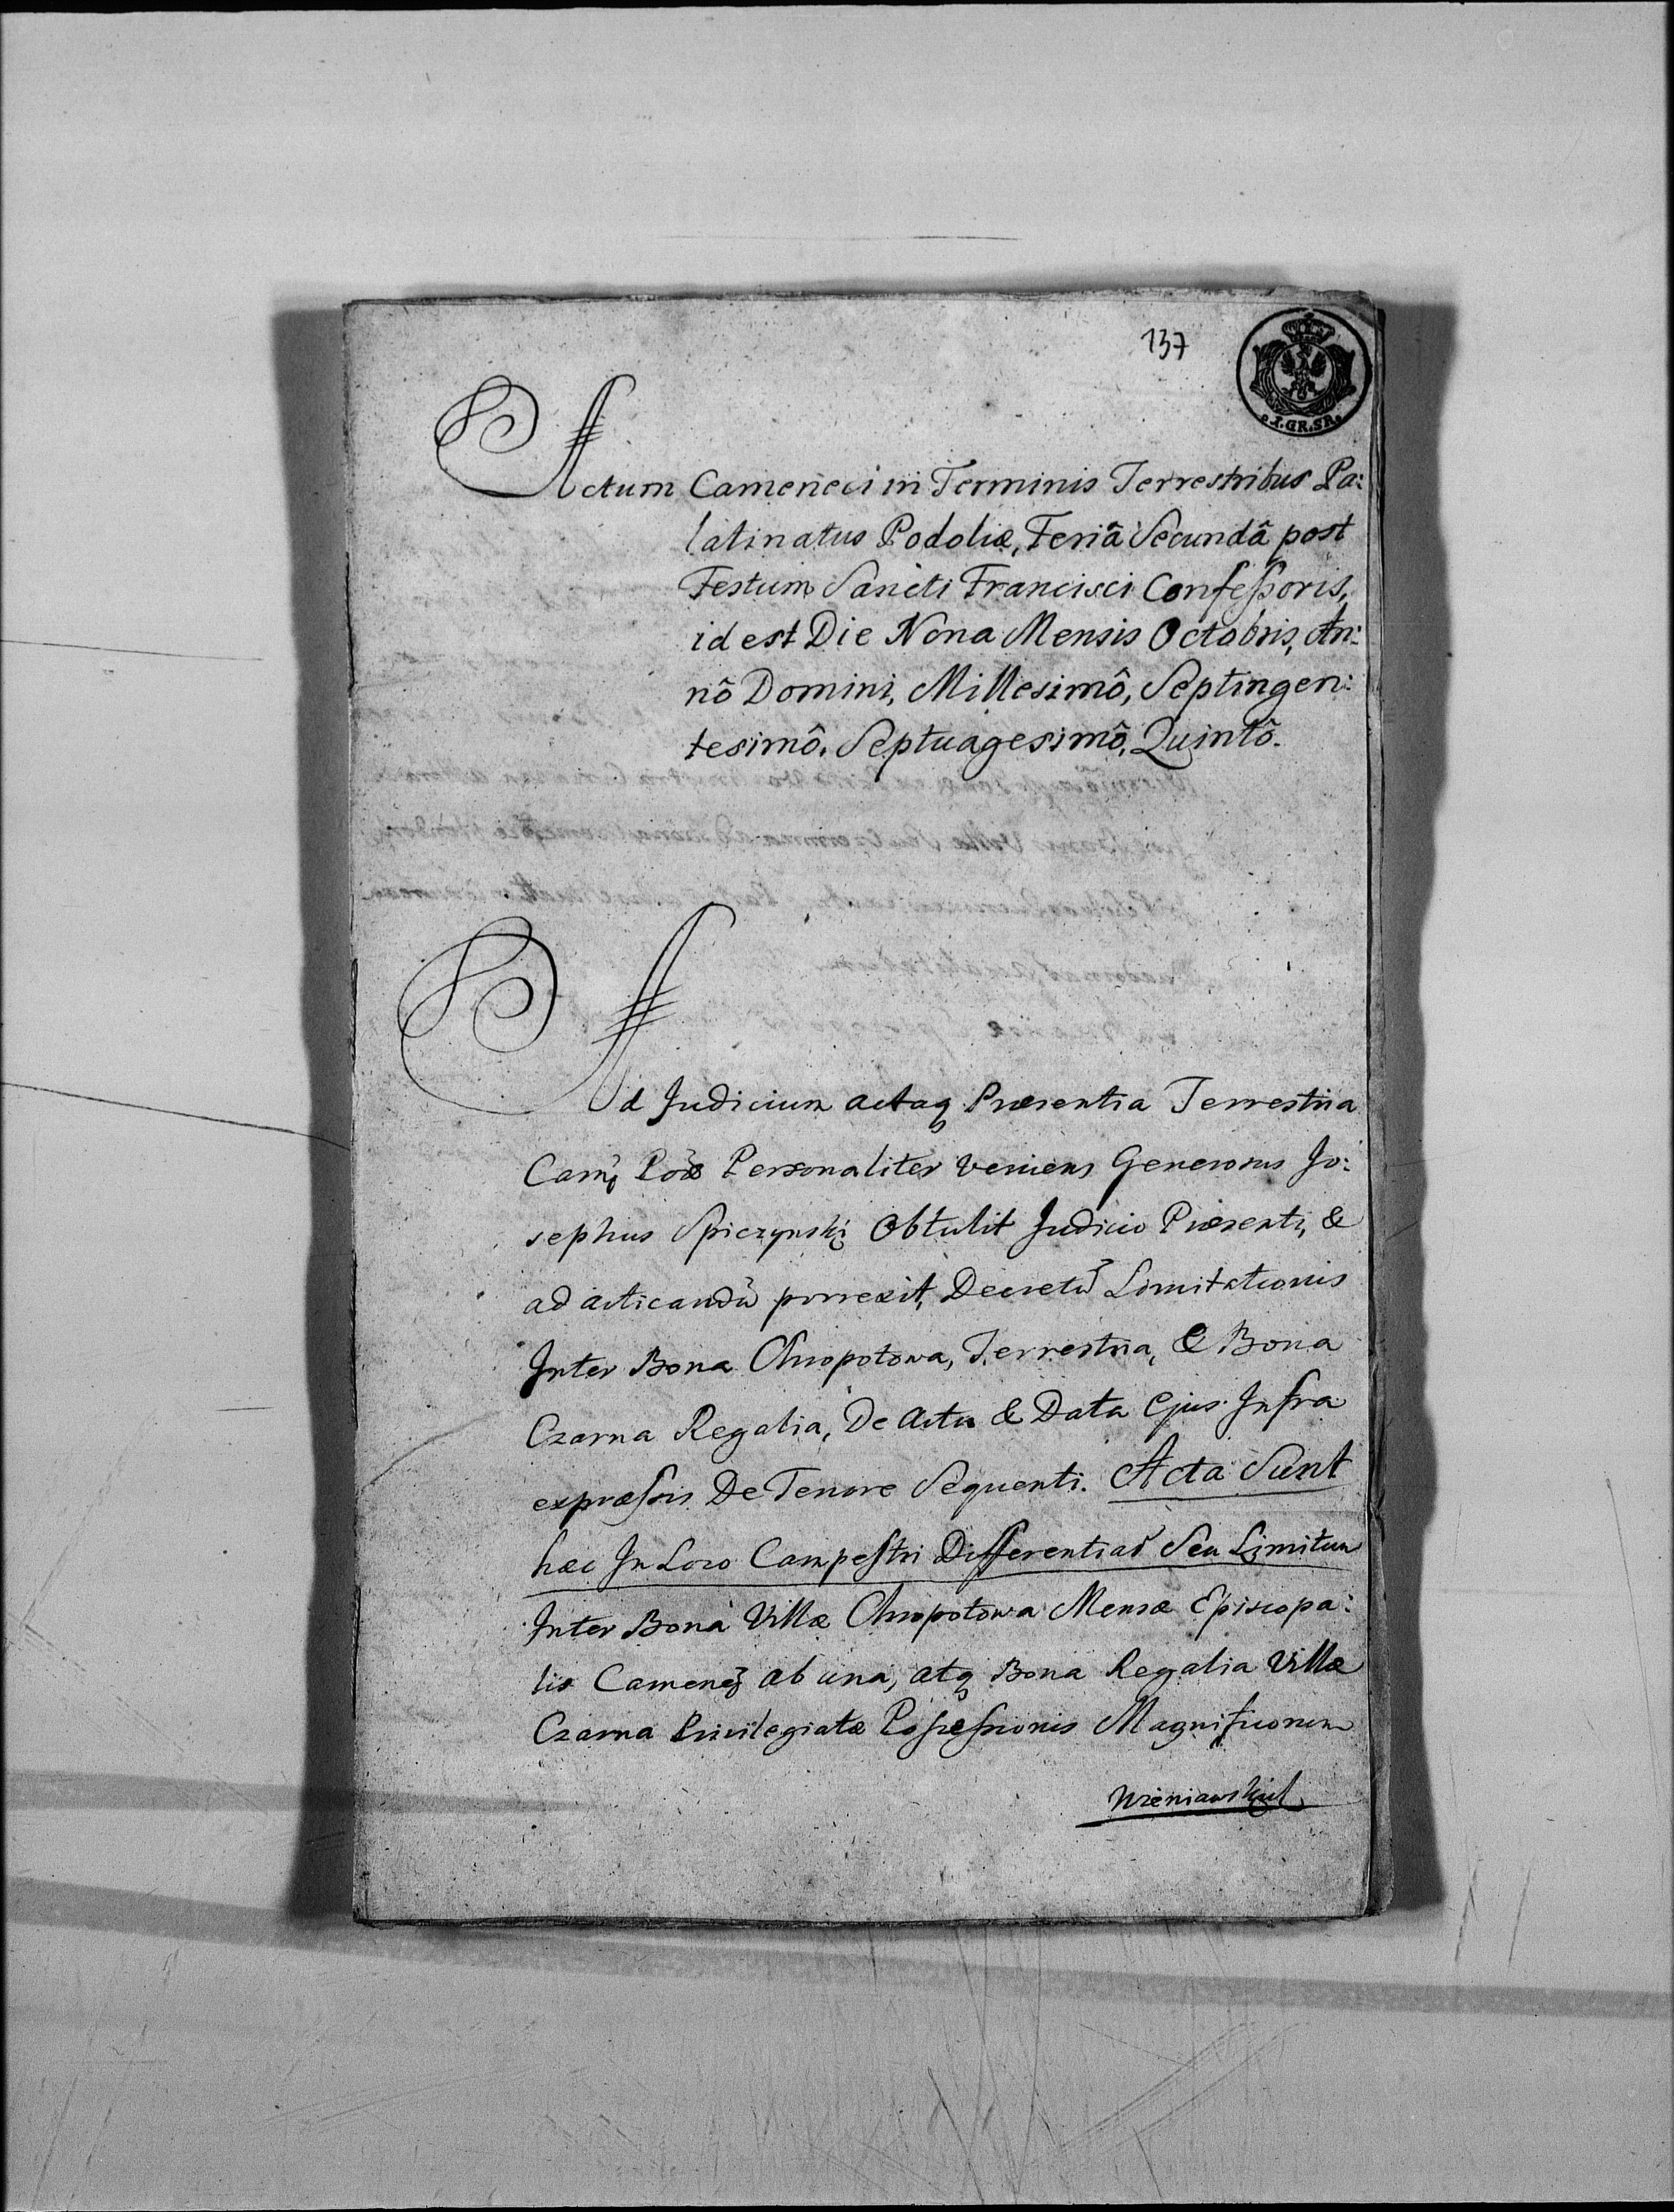 137
I.GR.SR.
Actum Cameneci in Terminis Terrestribus Pa:
latinatus Podoliæ, Feriâ Secundâ post
Festum Sancti Francisci Confeſsoris,
id est Die Nona Mensis Octobris, An:
nô Domini, Millesimô, Septingen:
tesimô, Septuagesimô, Quintô.
Ad Judicium actaq Præsentia Terrestria
Personaliter veniens Generosus Jo:
sephus Spiczynski Obtulit Judicio Præsenti, &
ad acticandũ porrexit, Decretũ Limitationis
Inter Bona Chropotowa, Terrestria, & Bona
Czarna Regalia, De Actu & Data Ejus Infra
expræſsis De Tenore Sequenti. Acta Sunt
hæc In Loco Campeſtri Differentiar Seu Limitum
Inter Bona Villæ Chropotowa Mensæ Episcopa:
lis Camene ab una, atq Bona Regalia Villæ
Czarna Privilegiatæ Poſseſsionis Magnificorum